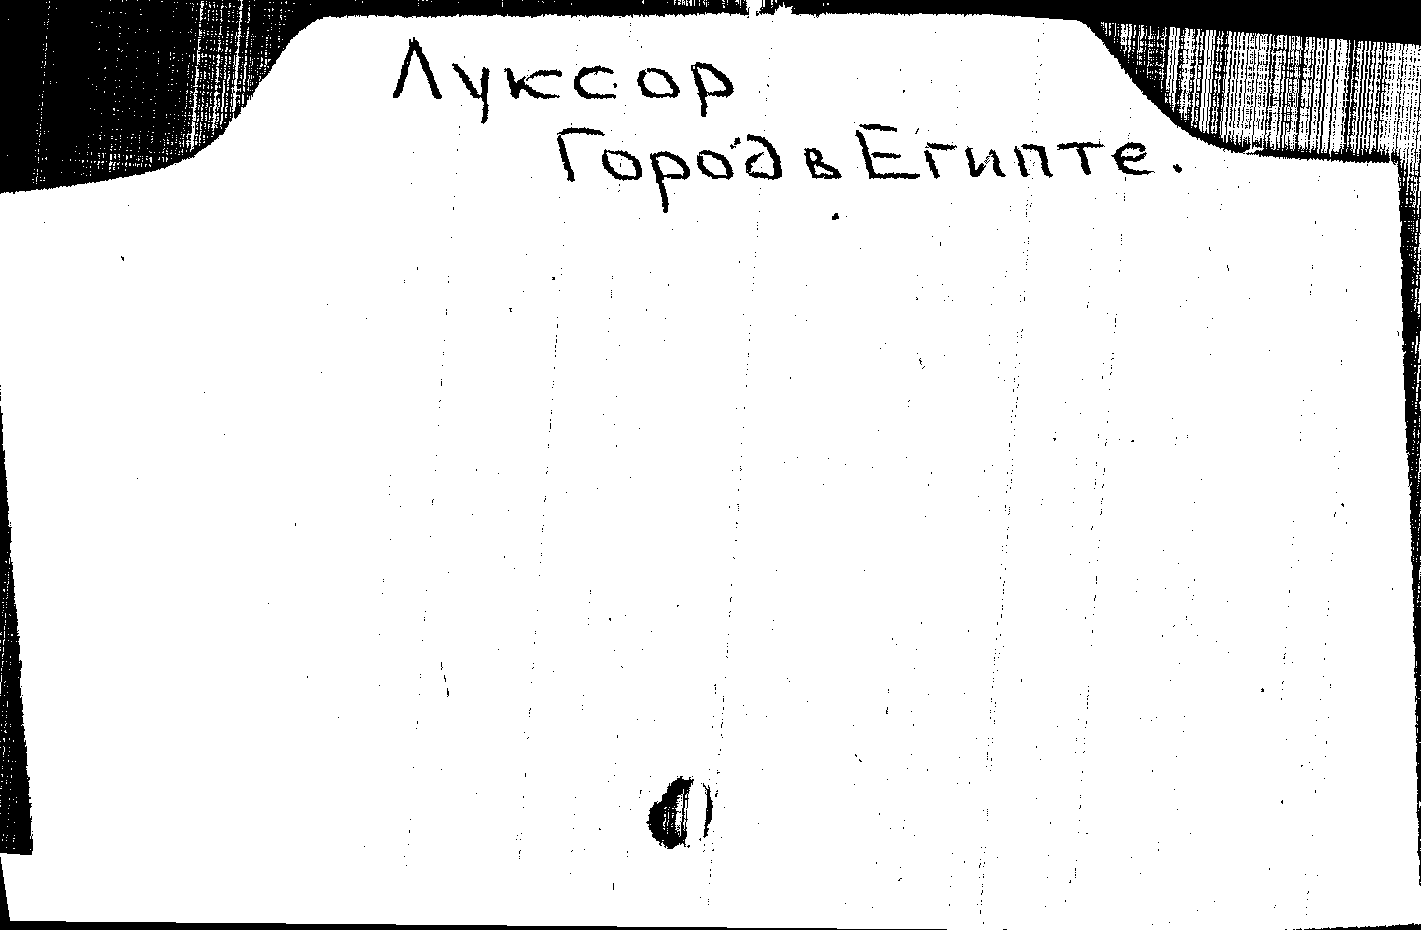 Луксор
Город в Египте.